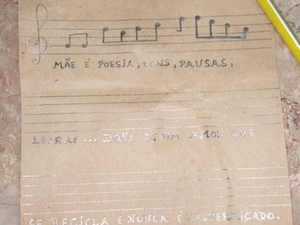 MÃE É POESIA, PAUSAS,
LETRAS... DONA DE UM AMOR QUE
SE RECICLA E NUNCA É DESPERDIÇADO.